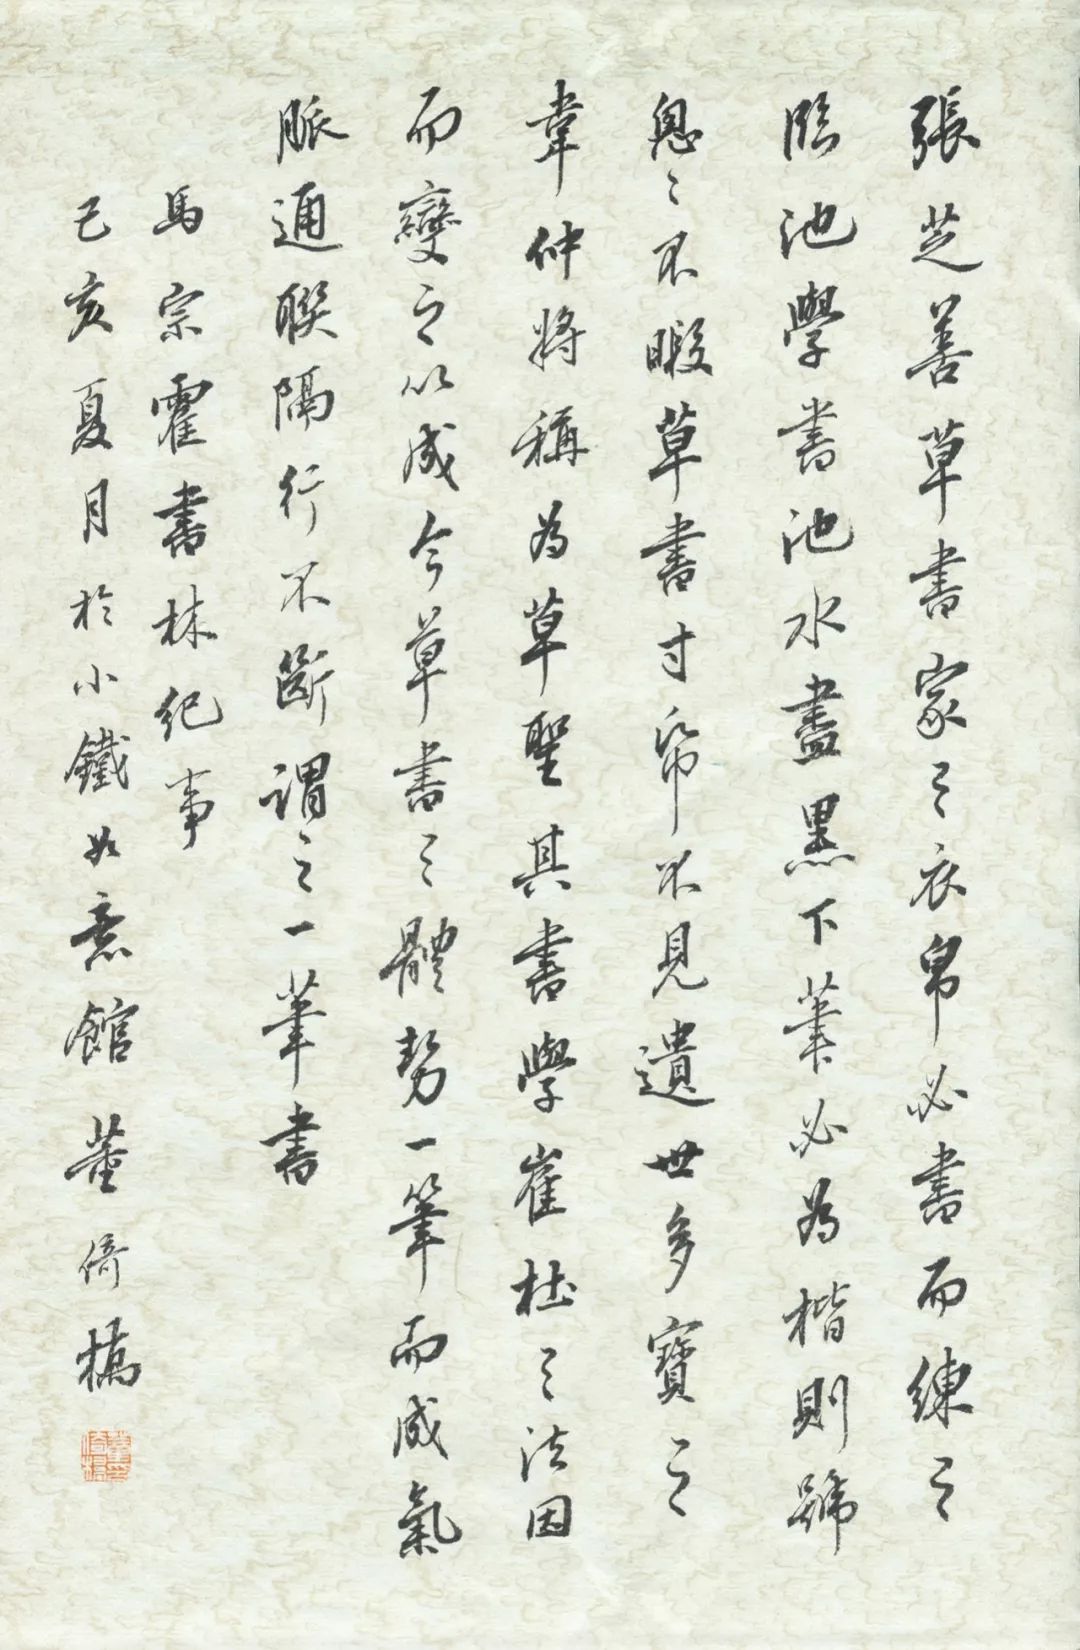 張芝善草書家之衣帛必書而練之
臨池學書池水盡黑下筆必為楷則號
怱〻不暇草書寸帋不見遺世多寶之
韋仲將稱為草聖其書學崔杜之法因
而變之以成今草書之體勢一筆而成氣
脈通聯隔行不斷謂之一筆書
馬宗霍書林紀事
己亥夏月於小鐵如意館董倚橋